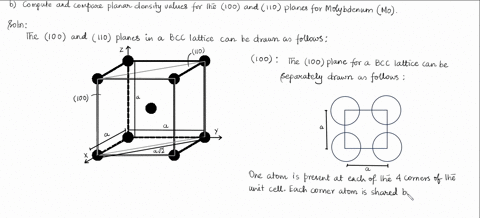 b) Compute and compare planar density values for the (100) and (110) planes for Molybdenum (Mo).
Soln:
The (100) and (110) planes in a BCC lattice can be drawn as follows:
z
(110)
(100)
a
a
a
y
x
a√2
(100): The (100) plane for a BCC lattice can be
separately drawn as follows:
a
a
One atom is present at each of the 4 corners of the
unit cell. Each corner atom is shared b